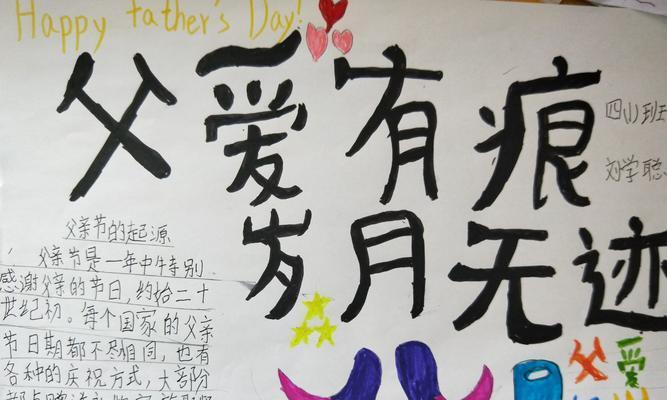 Happy father's Day!
父爱有痕
岁月无迹
四小班
刘学聪
父亲节的起源
父亲节是一年中特别
感谢父亲的节日，约始二十
世纪初。每个国家的父亲
节日期都不尽相同，也有
各种的庆祝方式，大部分
父爱